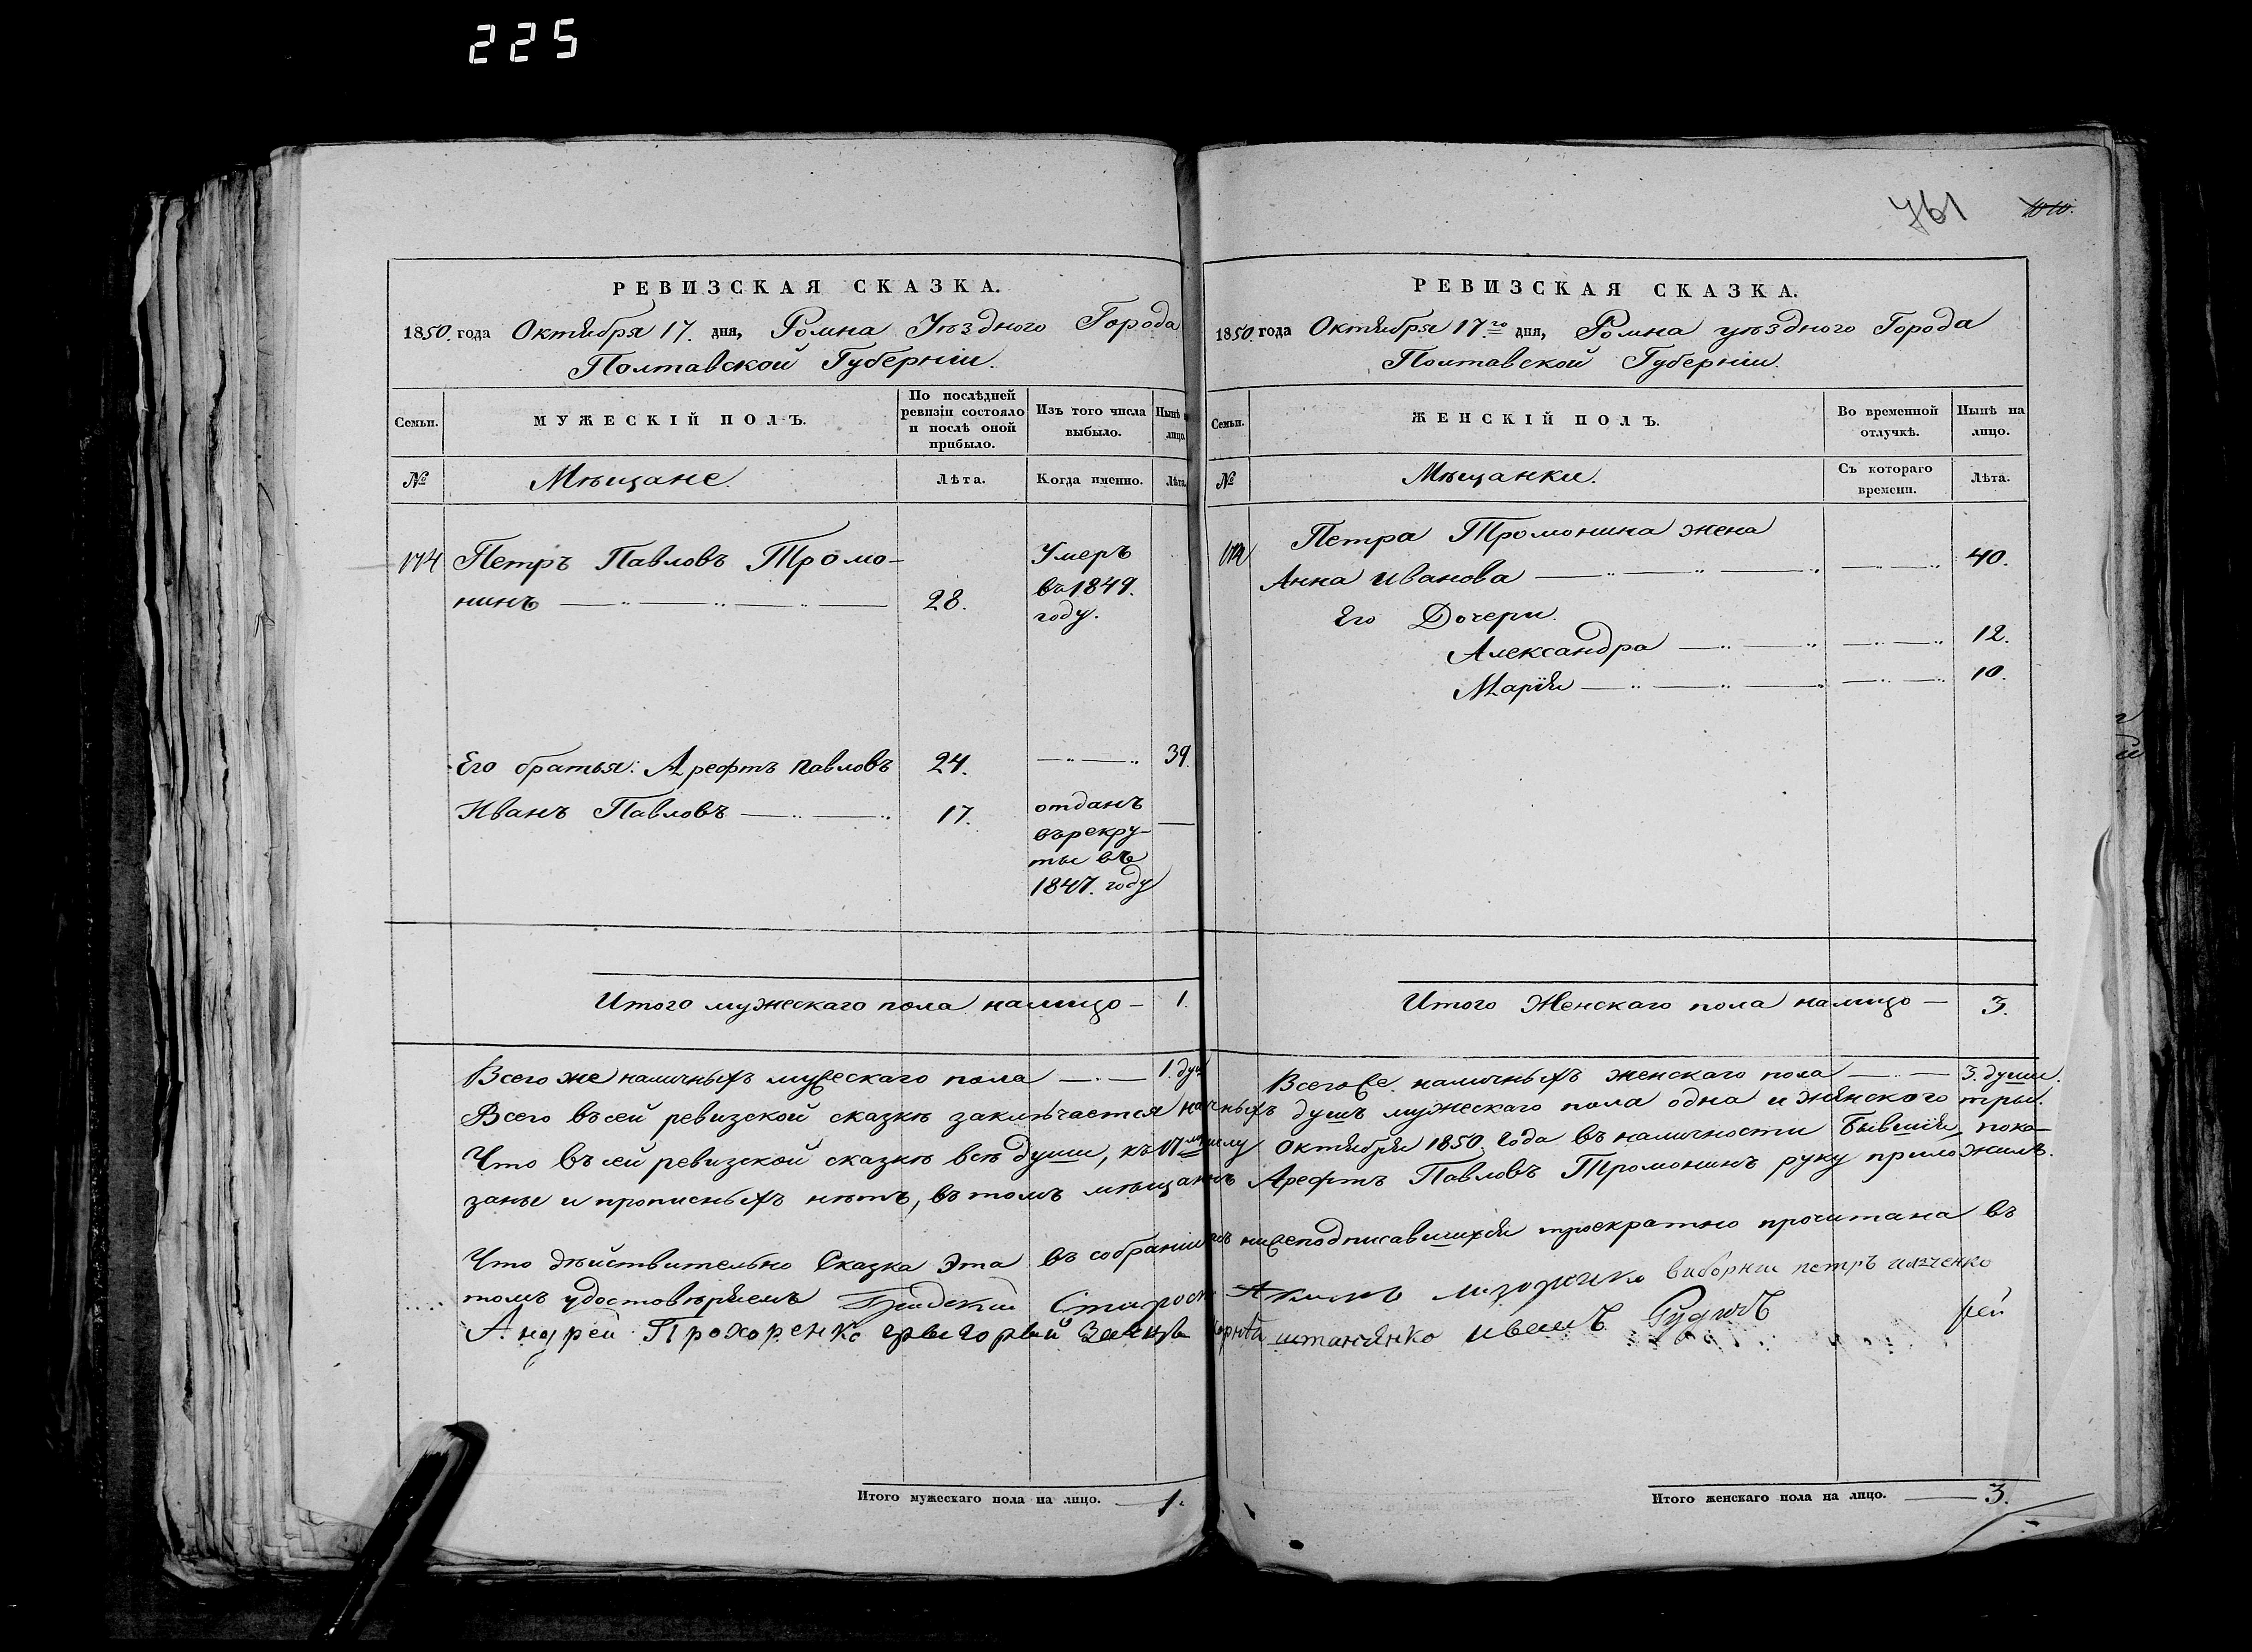 225
761
1010.
РЕВИЗСКАЯ СКАЗКА.
1850. года Октября 17. дня, Ромна Уѣзднаго Города
Полтавской Губерніи.
Семьи.
МУЖЕСКІЙ ПОЛЪ.
По послѣдней
ревизіи состояло
и послѣ оной
прибыло.
Изъ того числа
выбыло.
Нынѣ на
лицо.
№
Мѣщане.
Лѣта.
Когда именно.
Лѣта.
174 Петръ Павловъ Тромо-
нинъ 28.
Умеръ
въ 1849.
году.
Его братья: Арефтъ Павловъ 24. 39.
Иванъ Павловъ 17.
отданъ
въ рекру-
ты въ
1847. году
Итого мужескаго пола налицо — 1.
Всего же наличныхъ мужескаго пола — 1. душ
РЕВИЗСКАЯ СКАЗКА.
1850. года Октября 17го дня, Ромна уѣзднаго Города
Полтавской Губерніи.
Семьи.
ЖЕНСКІЙ ПОЛЪ.
Во временной
отлучкѣ.
Нынѣ на
лицо.
№
Мѣщанки.
Съ котораго
времени.
Лѣта.
174 Петра Тромонина жена
Анна Иванова 40.
Его Дочери.
Александра 12.
Марія 10.
Итого Женскаго пола налицо — 3.
Всего же наличныхъ женскаго пола — 3. души.
Всего въ сей ревизской сказкѣ заключается душъ мужескаго пола одна и женского три.
Что въ сей ревизской сказкѣ всѣ души, къ 17му числу Октября 1850 года въ наличности бывшія, пока-
заны и прописныхъ нѣтъ, въ томъ мѣщанинъ Арефтъ Павловъ Тромонинъ руку приложилъ.
Что дѣйствительно Сказка эта въ собраніи нижеподписавшихся троекратно прочитана въ
томъ удостовѣряемъ Градскій Старост выборни петръ
Андрей Прохоренко григорий иванъ Рудичъ
Итого мужескаго пола на лицо. — 1.
Итого женскаго пола на лицо. — 3.